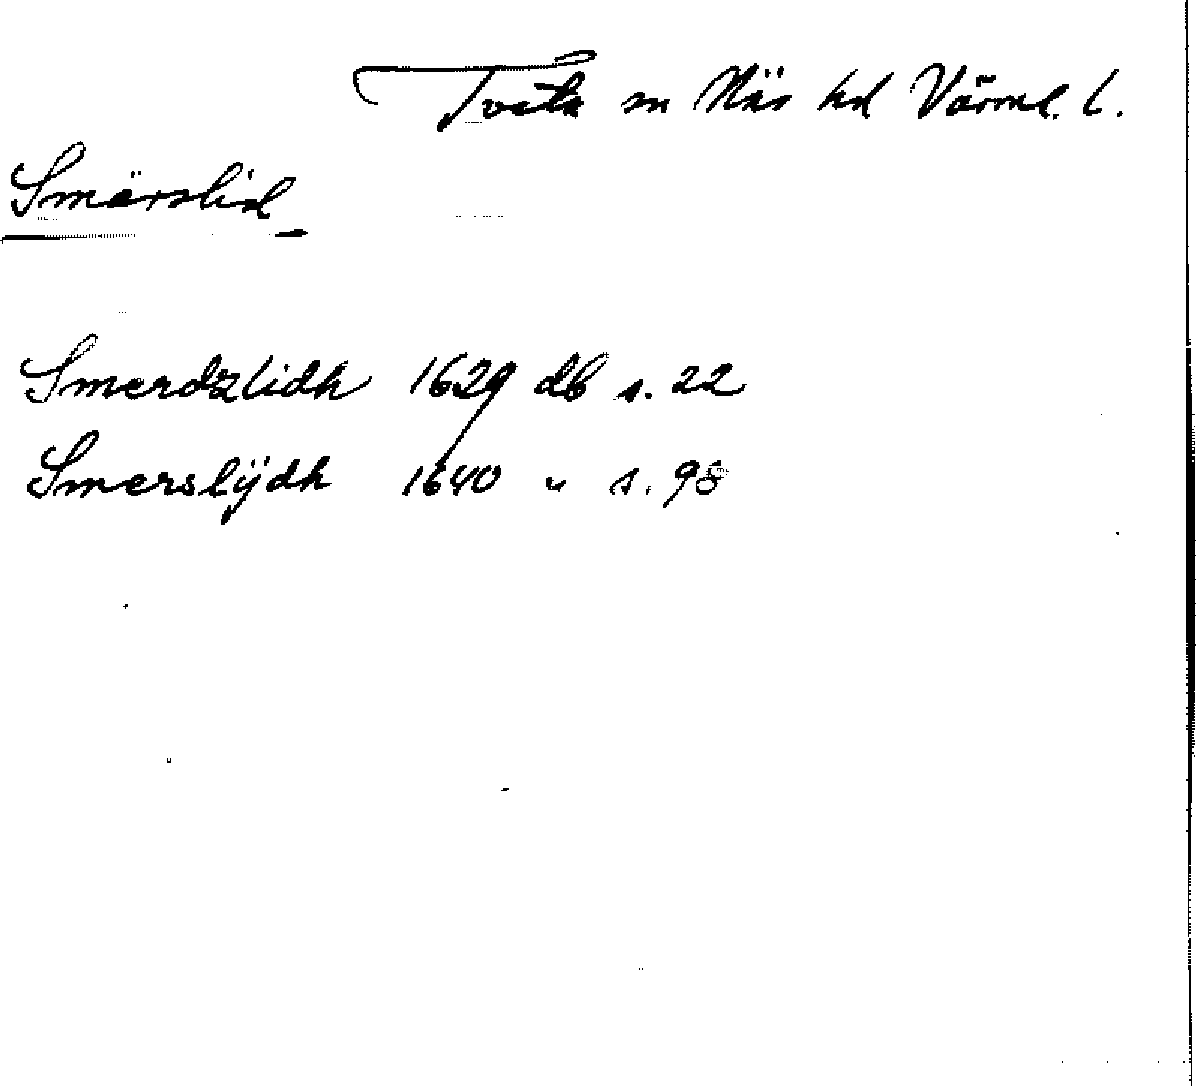 Tveta sn Näs hd Värml. l.
Smärslid
Smerdzlidh 1629 db s. 22
Smerslÿdh 1640 " s. 98